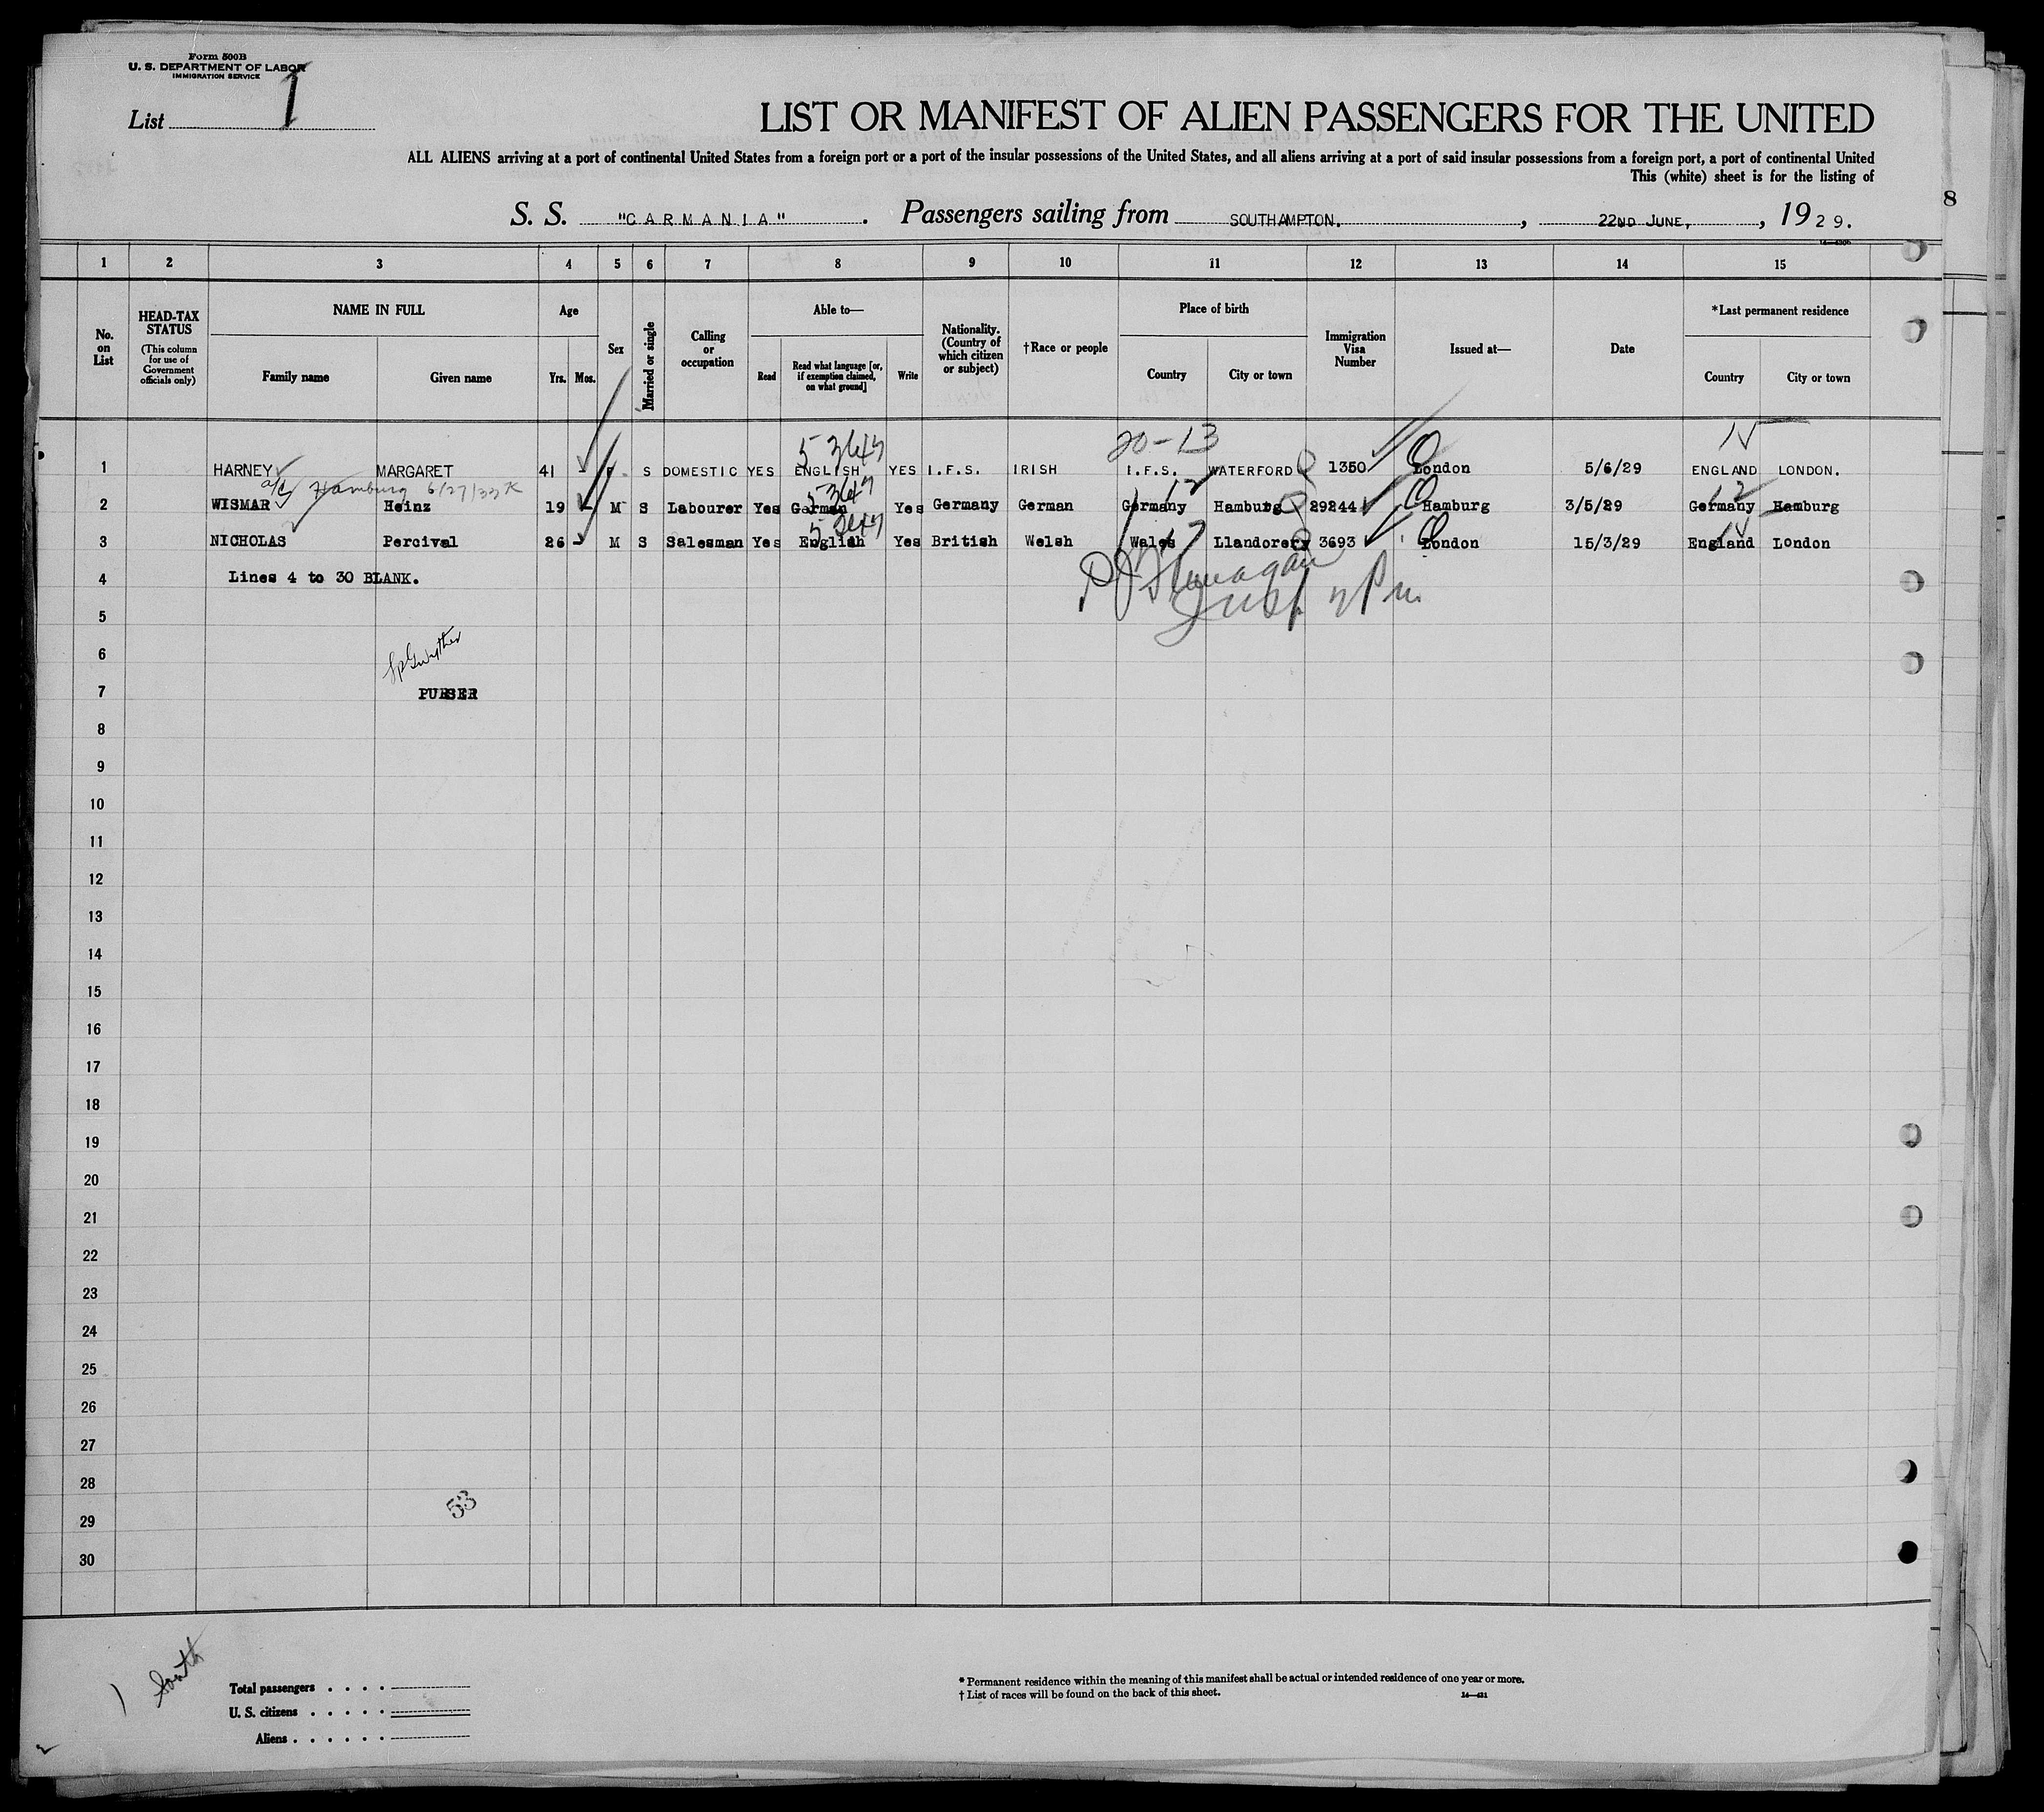 Form 500B
U. S. DEPARTMENT OF LABOR
IMMIGRATION SERVICE
List 1
LIST OR MANIFEST OF ALIEN PASSENGERS FOR THE UNITED
ALL ALIENS arriving at a port of continental United States from a foreign port or a port of the insular possessions of the United States, and all aliens arriving at a port of said insular possessions from a foreign port, a port of continental United
This (white) sheet is for the listing of
8
S. S. "CARMANIA". Passengers sailing from SOUTHAMPTON., 22ND JUNE, , 1929.
1 2 3 4 5 6 7 8 9 10 11 12 13 14 15
No. on List
HEAD-TAX STATUS (This column for use of Government officials only)
NAME IN FULL
Family name Given name
Age
Yrs. Mos.
Sex
Married or single
Calling or occupation
Able to—
Read Read what language [or, if exemption claimed, on what ground] Write
Nationality. (Country of which citizen or subject)
†Race or people
Place of birth
Country City or town
Immigration Visa Number
Issued at—
Date
*Last permanent residence
Country City or town
20-13
1 HARNEY MARGARET 41 S DOMESTIC YES ENGLISH YES I.F.S. IRISH I.F.S. WATERFORD 1350 London 5/6/29 ENGLAND LONDON.
Hamburg 6/27/33
2 WISMAR Heinz 19 M S Labourer Yes German Yes Germany German Germany Hamburg 29244 Hamburg 3/5/29 Germany Hamburg
3 NICHOLAS Percival 26 M S Salesman Yes English Yes British Welsh Wales Llandorery 3693 London 15/3/29 England London
4 Lines 4 to 30 BLANK.
5
6
7 PURSER
8
9
10
11
12
13
14
15
16
17
18
19
20
21
22
23
24
25
26
27
28
29
53
30
South
Total passengers
U. S. citizens
Aliens
* Permanent residence within the meaning of this manifest shall be actual or intended residence of one year or more.
† List of races will be found on the back of this sheet.